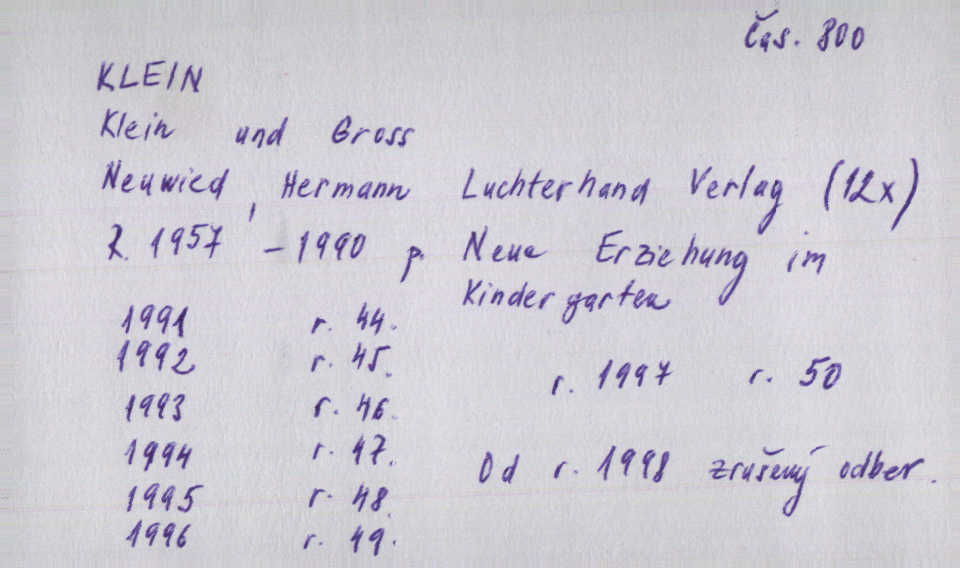 Čas. 800
KLEIN
Klein und Gross
Neuwied, Hermann Luchterhand Verlag (12x)
R. 1957 - 1990 p. Neue Erziehung im
Kindergarten
1991 r. 44.
1992 r. 45.
1993 r. 46.
1994 r. 47.
1995 r. 48.
1996 r. 49.
r. 1997 r. 50
Od r. 1998 zrušený odber.